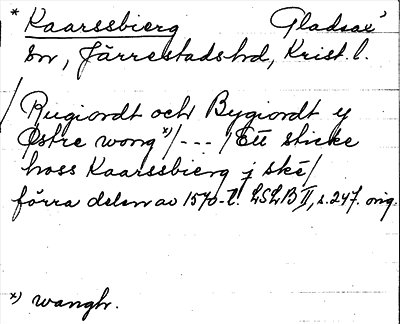 * Kaarssbierg Gladsax'
sn, Järrestads hd, Krist. l.
/ Rugiordt och Bygiordt y
Østre wong x)/ - - - / Ett sticke
hoss Kaarssbierg j ske/
förra delen av 1570-t. LSLB II, s. 247. orig.
x) wangh.